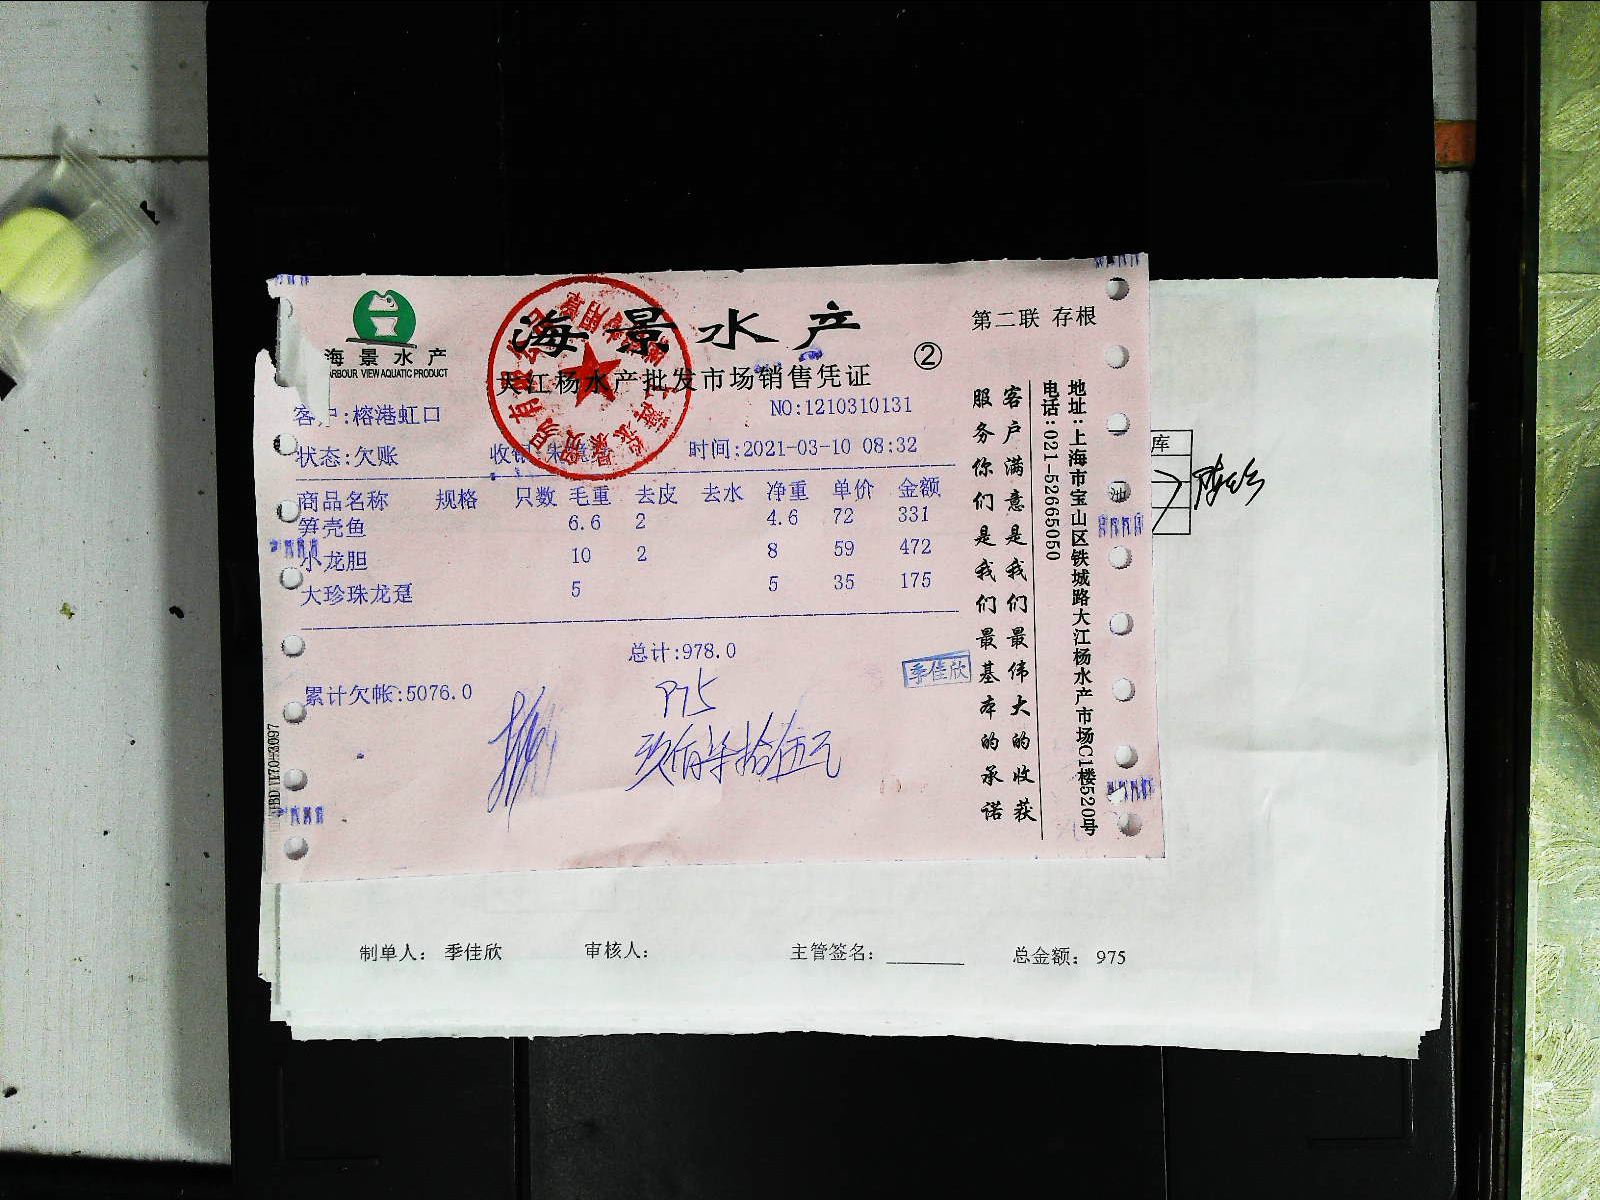 海景水产
第二联 存根
海景水产
ARBOUR VIEW AQUATIC PRODUCT
②
大江杨水产批发市场销售凭证
客户:榕港虹口
NO:1210310131
状态:欠账
时间:2021-03-10 08:32
商品名称 规格 只数 毛重 去皮 去水 净重 单价 金额
笋壳鱼 6.6 2 4.6 72 331
小龙胆 10 2 8 59 472
大珍珠龙趸 5 5 35 175
总计:978.0
累计欠帐:5076.0
季佳欣
975
玖佰柒拾伍元
客户满意是我们最伟大的收获
服务你们是我们最基本的承诺
地址:上海市宝山区铁城路大江杨水产市场C1楼520号
电话:021-52665050
库
油
制单人: 季佳欣 审核人: 主管签名: 总金额: 975